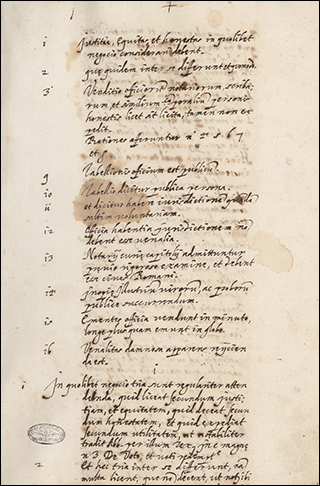 1 Justitia, Equitas, et honestas in quolibet
negocio considerari debent.
2 que quidem inter se differunt et
3 Venditio officiorum notariorum, scriba-
rum, et similium personis
honestis licet sit licita, tamen non ex-
pedit.
Rationes afferuntur nº 4. 5. 6. 7
et 8.
9 Tabellionis officium est publicum.
10 Tabellio dicitur publica persona.
11 et dicitur habere iurisdictionem
saltim voluntariam.
12 Officia habentia jurisdictionem nō
debent esse venalia.
13 Notarij curie capitolij admittuntur
previo rigoroso examine, et debent
esse cives Romani.
14 inopie illustrium virorum, ac proborum
publice succurrendum.
15 Ementes officia vendunt in minuto,
longe plus quam emunt in globo.
16 Venalitas damnosa apparens rejicien-
da est.
1
1 In quolibet negocio tria sunt regulariter atten-
denda, quid liceat secundum justi-
tiam, et equitatem, quid deceat secun-
dum honestatem, et quid expediat
secundum utilitatem, ut notabiliter
tradit per illum tex. in c. magne
n 3. De Voto, et
2 Et hec tria inter se differunt, nam
multa licent, que nō decent, ut